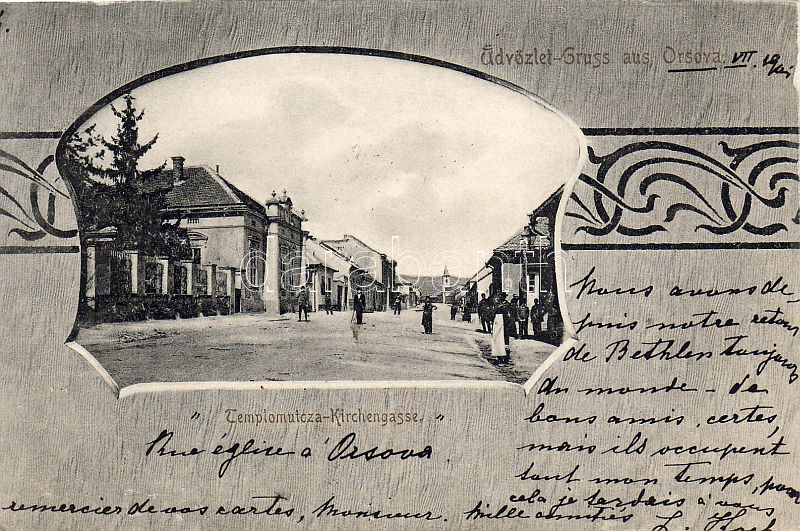 Üdvözlet-Gruss aus Orsova. VII.
darabanth
Nous avons de-
puis notre retour
de Bethlen toujours
du monde - de
bons amis, certes,
mais ils occupent
tout mon temps, pour
cela je tardais à vous
remercier de vos cartes, Monsieur. Mille amitiés L.
"Templomutcza-Kirchengasse."
Rue église à Orsova